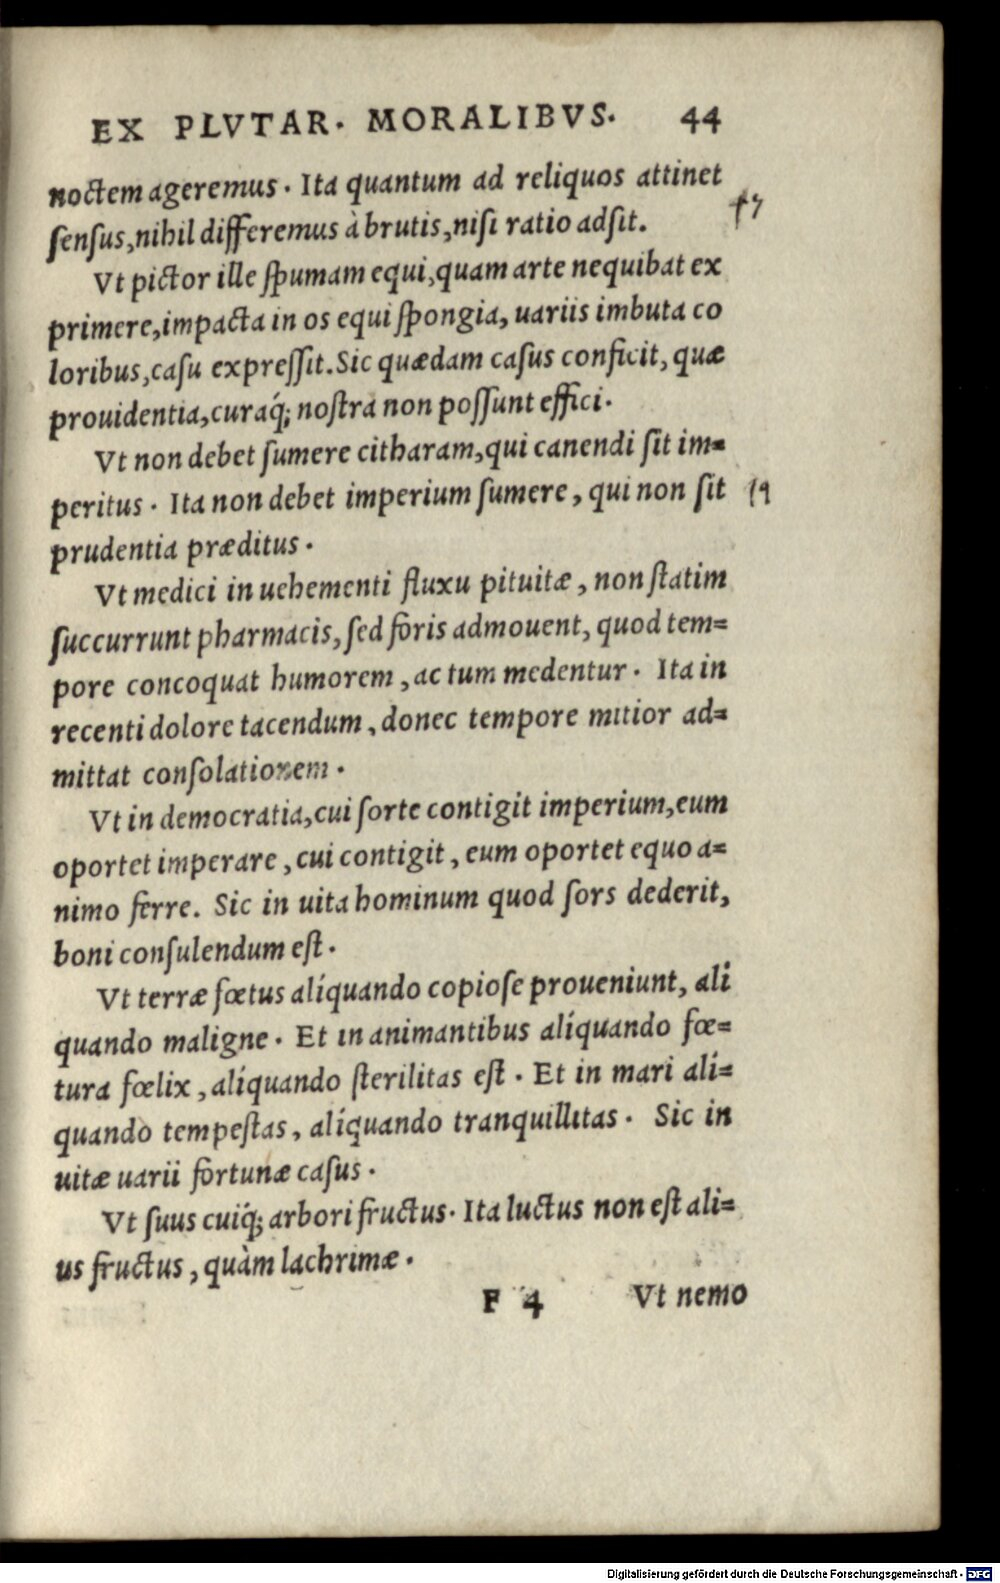 EX PLVTAR. MORALIBVS. 44
noctem ageremus. Ita quantum ad reliquos attinet
ſenſus, nihil differemus à brutis, niſi ratio adſit.
Vt pictor ille ſpumam equi, quam arte nequibat ex
primere, impacta in os equi ſpongia, uariis imbuta co
loribus, caſu expreſſit. Sic quædam caſus conficit, quæ
prouidentia, curaq́; noſtra non poſſunt effici.
Vt non debet ſumere citharam, qui canendi ſit im=
peritus. Ita non debet imperium ſumere, qui non ſit
prudentia præditus.
Vt medici in uehementi fluxu pituitæ, non ſtatim
ſuccurrunt pharmacis, ſed foris admouent, quod tem=
pore concoquat humorem, ac tum medentur. Ita in
recenti dolore tacendum, donec tempore mitior ad=
mittat conſolationem.
Vt in democratia, cui ſorte contigit imperium, eum
oportet imperare, cui contigit, eum oportet equo a=
nimo ferre. Sic in uita hominum quod ſors dederit,
boni conſulendum eſt.
Vt terræ fœtus alíquando copioſe proueniunt, ali
quando maligne. Et in animantibus alíquando fœ=
tura fœlix, alíquando ſterilitas eſt. Et in mari alí=
quando tempeſtas, alíquando tranquillitas. Sic in
uitæ uarii fortunæ caſus.
Vt ſuus cuiq́; arbori fructus. Ita luctus non eſt ali=
us fructus, quàm lachrimæ.
F 4 Vt nemo
Digitalisierung gefördert durch die Deutsche Forschungsgemeinschaft - DFG